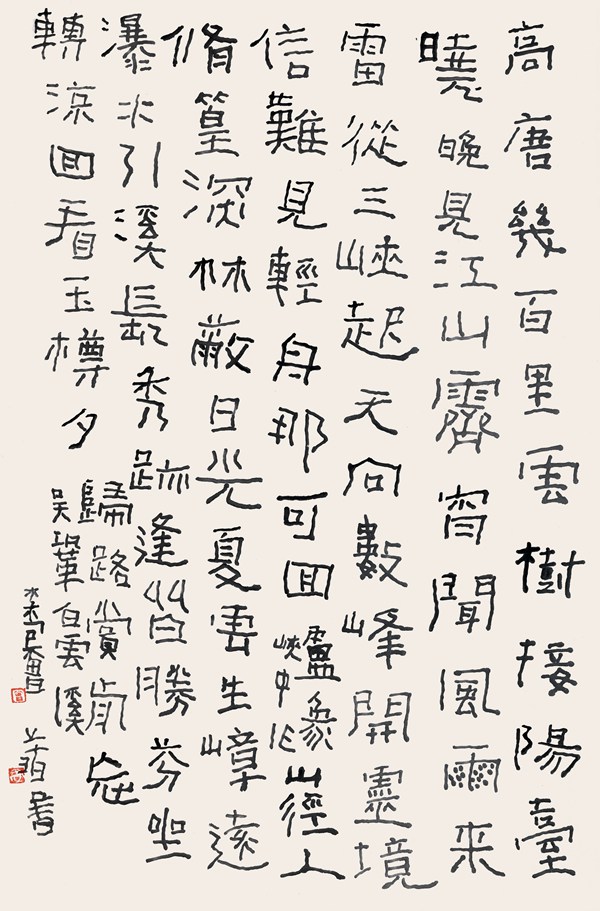 高唐幾百里雲樹接陽臺
曉晚見江山霽宵聞風雨來
雷從三峽起天向數峰開靈境
信難見輕舟那可回
盧象
峽中作
山徑入
脩篁深林蔽日光夏雲生嶂遠
瀑水引溪長秀跡逢皆勝芬坐
轉涼回看玉樽夕
歸路賞前忘
吴鞏白雲溪